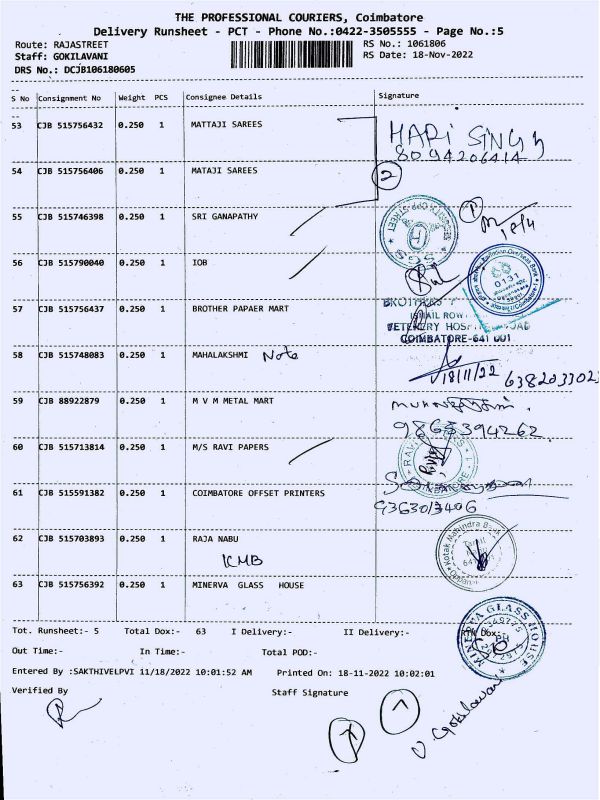 THE PROFESSIONAL COURIERS, Coimbatore
Delivery Runsheet - PCT - Phone No.:0422-3505555 - Page No.:5
Route: RAJASTREET
RS No.: 1061806
Staff: GOKILAVANI
RS Date: 18-Nov-2022
DRS No.: DCJB106180605
S No Consignment No Weight PCS Consignee Details Signature
53 CJB 515756432 0.250 1 MATTAJI SAREES HARI SINGH
8094206414
54 CJB 515756406 0.250 1 MATAJI SAREES 2
55 CJB 515746398 0.250 1 SRI GANAPATHY
SGS
56 CJB 515790040 0.250 1 IOB
0131
57 CJB 515756437 0.250 1 BROTHER PAPAER MART
BROTHERS
COIMBATORE-641 001
58 CJB 515748083 0.250 1 MAHALAKSHMI Note
18/11/22 638203302
59 CJB 88922879 0.250 1 M V M METAL MART
9865394262
60 CJB 515713814 0.250 1 M/S RAVI PAPERS
61 CJB 515591382 0.250 1 COIMBATORE OFFSET PRINTERS
9363013406
62 CJB 515703893 0.250 1 RAJA NABU
KMB
Kotak Mahindra Bank
63 CJB 515756392 0.250 1 MINERVA GLASS HOUSE
MINERVA GLASS HOUSE
Tot. Runsheet:- 5 Total Dox:- 63 I Delivery:- II Delivery:- RTN Dox:-
Out Time:- In Time:- Total POD:-
Entered By :SAKTHIVELPVI 11/18/2022 10:01:52 AM Printed On: 18-11-2022 10:02:01
Verified By Staff Signature
V. Gokilavani